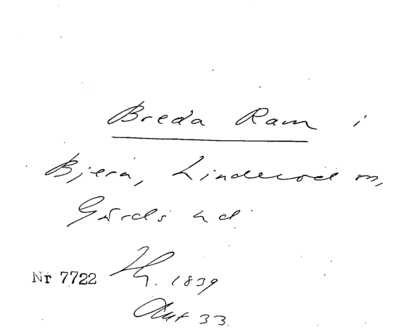 Breda Ram i
Bjera, Linderod m,
Gärds hd
Nr 7722 Th. 1839
Aut 33